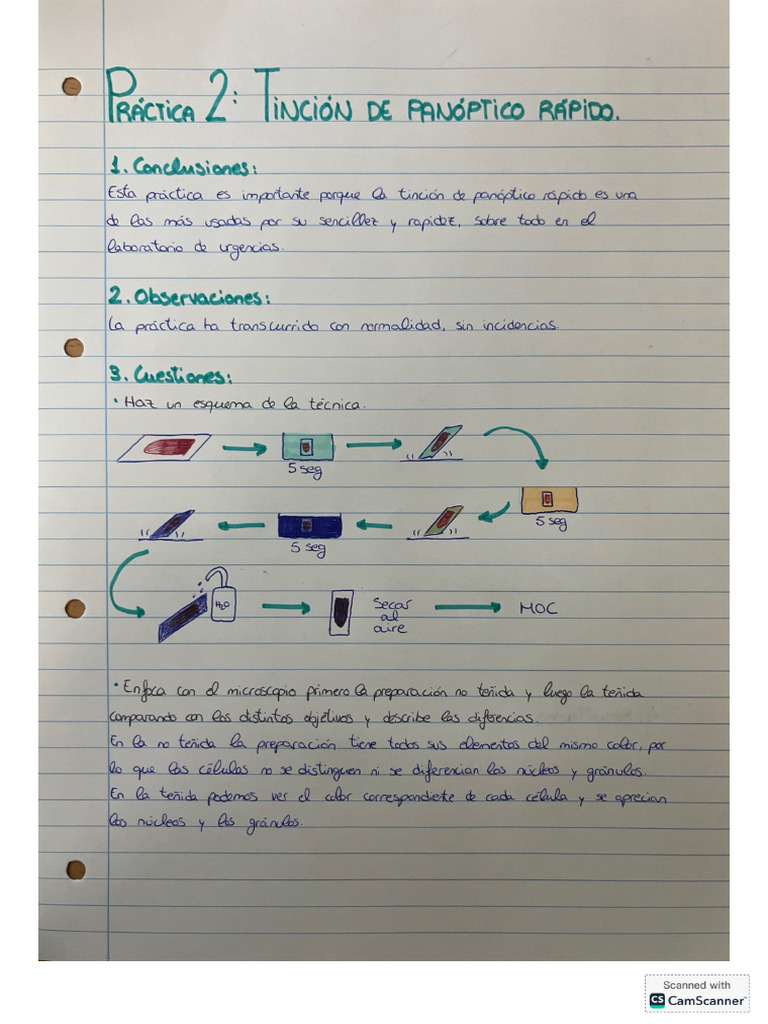 PRÁCTICA 2: TINCIÓN DE PANÓPTICO RÁPIDO.
1. Conclusiones:
Esta práctica es importante porque la tinción de panóptico rápido es una
de las más usadas por su sencillez y rapidez, sobre todo en el
laboratorio de urgencias.
2. Observaciones:
La práctica ha transcurrido con normalidad, sin incidencias.
3. Cuestiones:
· Haz un esquema de la técnica.
5 seg
5 seg
5 seg
H₂O
Secar
al
aire
MOC
· Enfoca con el microscopio primero la preparación no teñida y luego la teñida
comparando con los distintos objetivos y describe las diferencias.
En la no teñida la preparación tiene todos sus elementos del mismo color, por
lo que las células no se distinguen ni se diferencian los núcleos y gránulos.
En la teñida podemos ver el color correspondiente de cada célula y se aprecian
los núcleos y los gránulos.
Scanned with
CS CamScanner